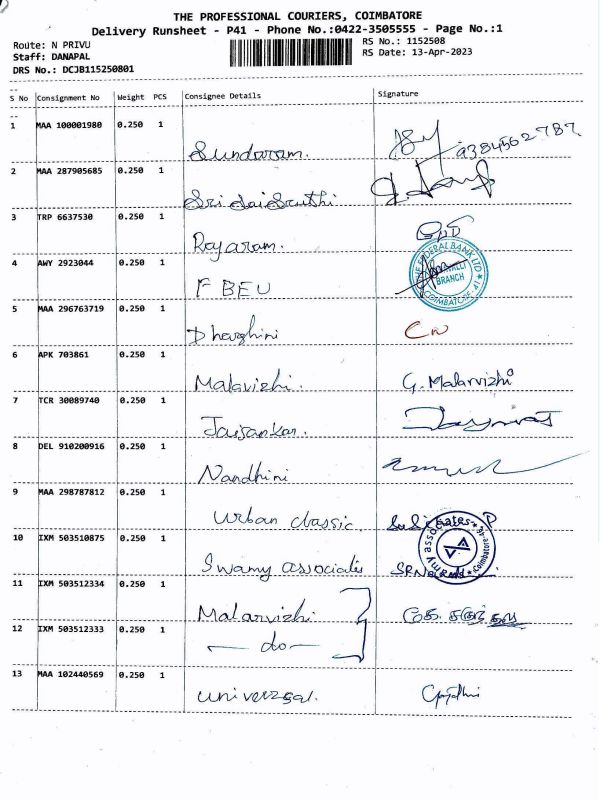 THE PROFESSIONAL COURIERS, COIMBATORE
Delivery Runsheet - P41 - Phone No.:0422-3505555 - Page No.:1
Route: N PRIVU
RS No.: 1152508
Staff: DANAPAL
RS Date: 13-Apr-2023
DRS No.: DCJB115250801
S No Consignment No Weight PCS Consignee Details Signature
1 MAA 100001980 0.250 1
Sundaram. 9384562787
2 MAA 287905685 0.250 1
Sri Sai Sruthi
3 TRP 6637530 0.250 1
Rajaram.
THE FEDERAL BANK LTD
4 AWY 2923044 0.250 1
BRANCH
F BEU
COIMBATORE
5 MAA 296763719 0.250 1
Dharghini
6 APK 703861 0.250 1
Malavizhi. G. Malarvizhi
7 TCR 30089740 0.250 1
Jaisankar.
8 DEL 910200916 0.250 1
Nandhini
9 MAA 298787812 0.250 1
Urban classic.
10 IXM 503510875 0.250 1
my associates Coimbatore
Swamy associates
11 IXM 503512334 0.250 1
Malarvizhi
12 IXM 503512333 0.250 1
- do -
13 MAA 102440569 0.250 1
universal.